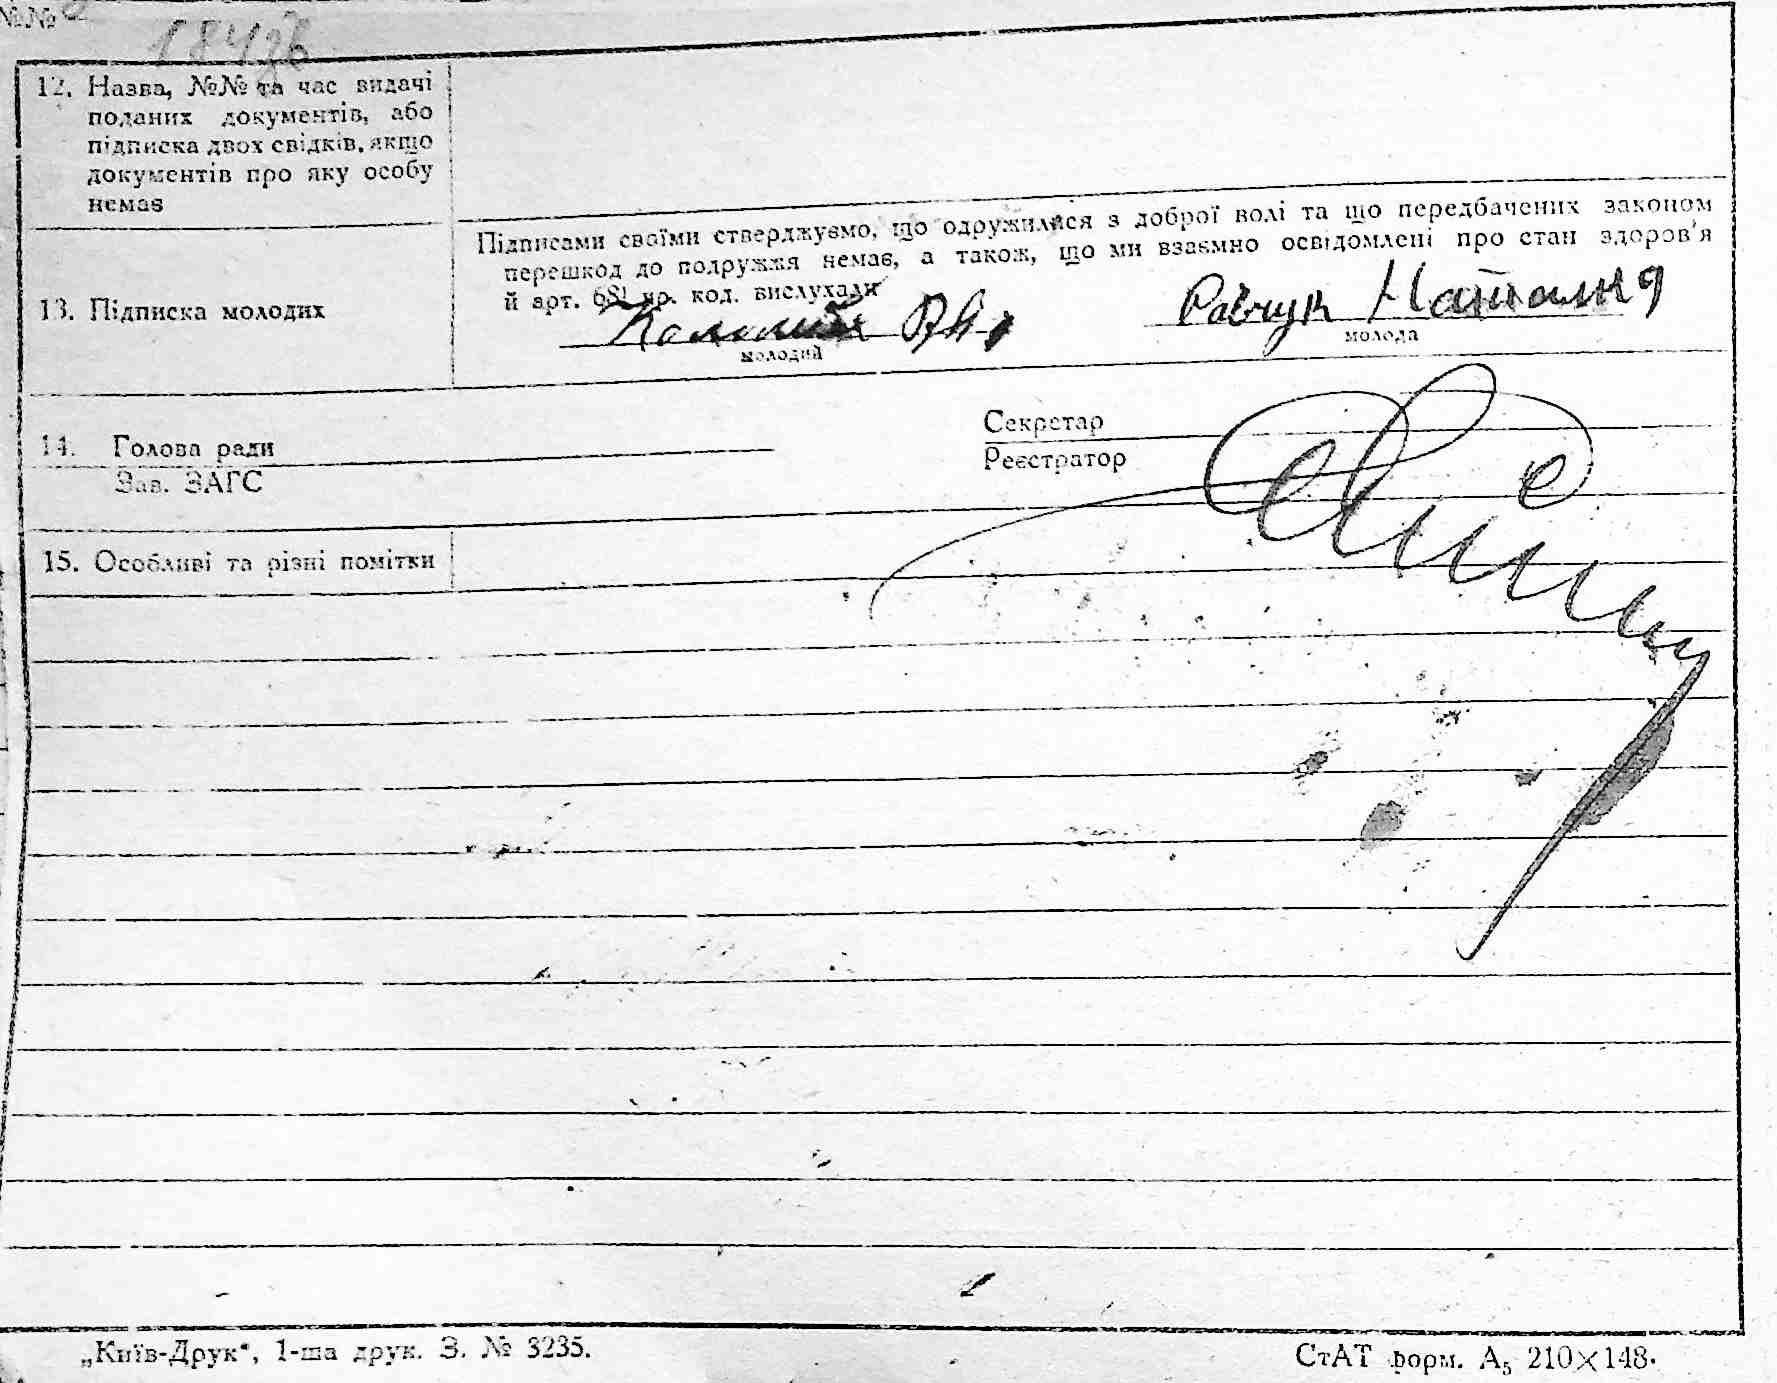 №№
12. Назва, №№ та час видачі
поданих документів, або
підписка двох свідків, якщо
документів про яку особу
немає
13. Підписка молодих
Підписами своїми стверджуємо, що одружилися з доброї волі та що передбачених законом
перешкод до подружжя немає, а також, що ми взаємно освідомлені про стан здоров'я
й арт. кр. код. вислухали
Наталия
молодий
молода
14. Голова ради
Зав. ЗАГС
Секретар
Реєстратор
15. Особливі та різні помітки
„Київ-Друк“, 1-ша друк. З. № 3235.
СтАТ форм. А₅ 210×148.